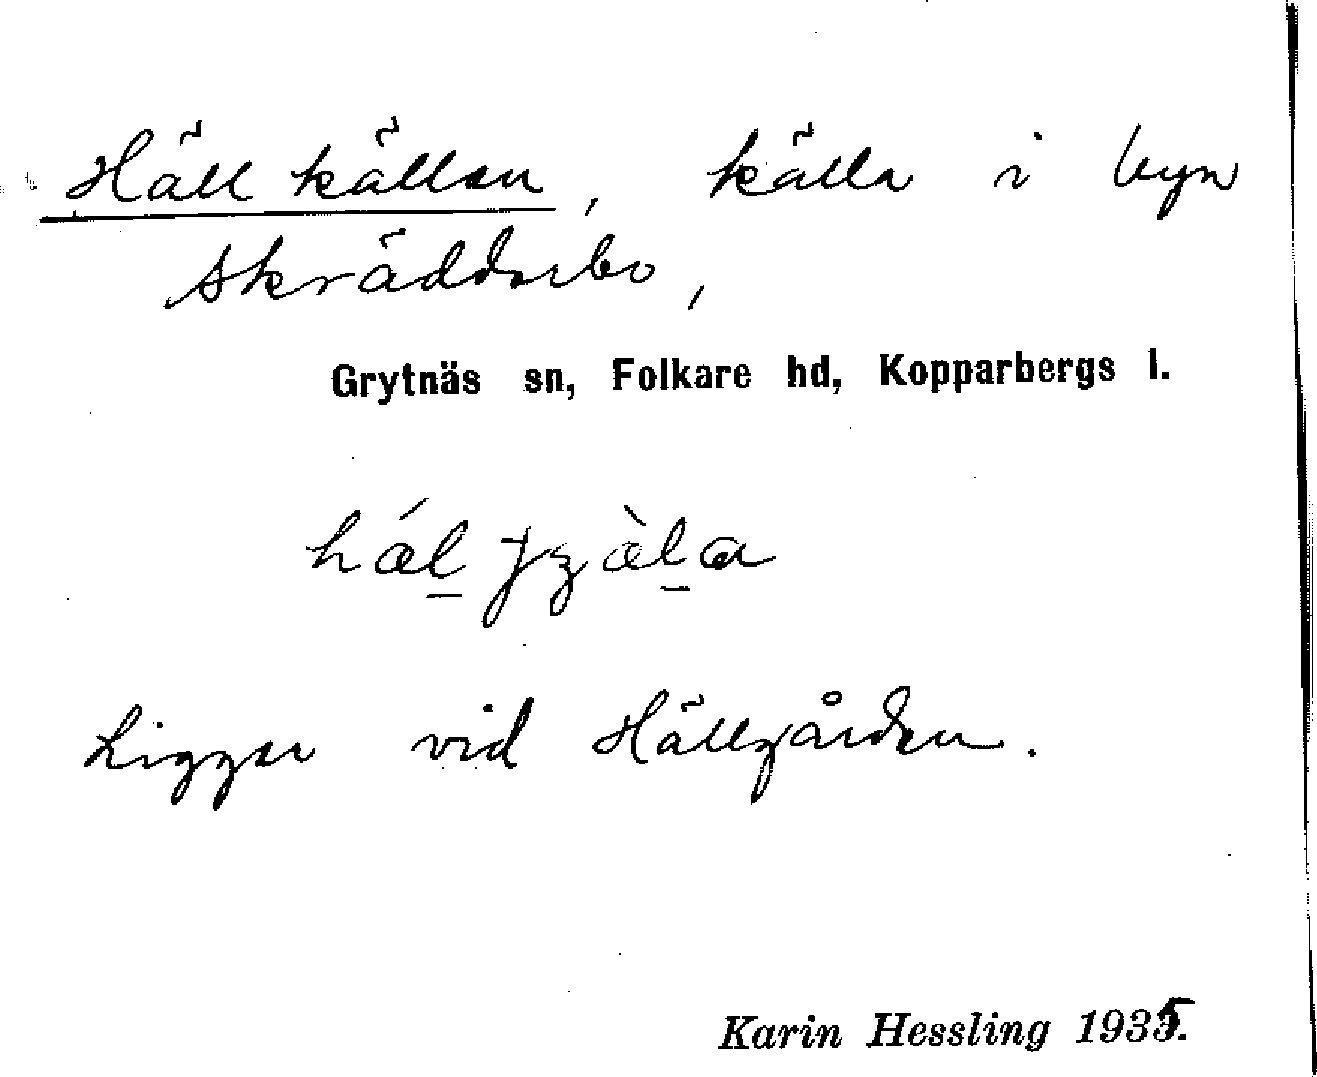 Hällkällan, källa i byn
Skräddarbo,
Grytnäs sn, Folkare hd, Kopparbergs l.
hǽl̲ȷʒæ̀l̲a
Ligger vid Hällgården.
Karin Hessling 1935.